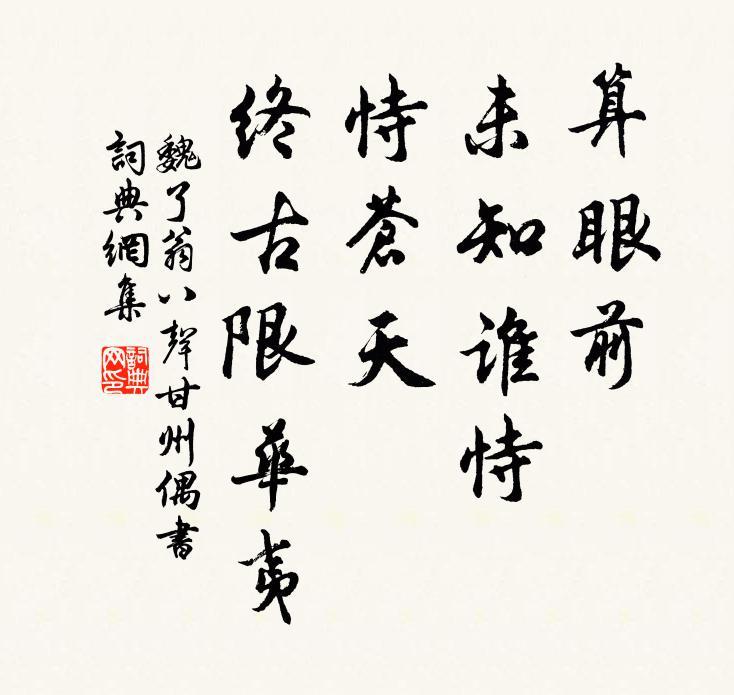 算眼前
未知谁恃
恃苍天
终古限华夷
魏了翁八声甘州偶书
詞典網集
詞典网印